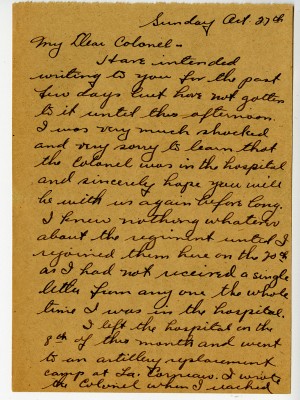 Sunday Oct. 27th
My Dear Colonel -
I have intended
writing to you for the past
few days but have not gotten
to it until this afternoon.
I was very much shocked
and very sorry to learn that
the Colonel was in the hospital
and sincerely hope you will
be with us again before long.
I knew nothing whatever
about the regiment until I
rejoined them here on the 20th
as I had not received a single
letter from any one the whole
time I was in the hospital.
I left the hospital on the
8th of this month and went
to an artillery replacement
camp at La Corneau. I wrote
the Colonel when I reached